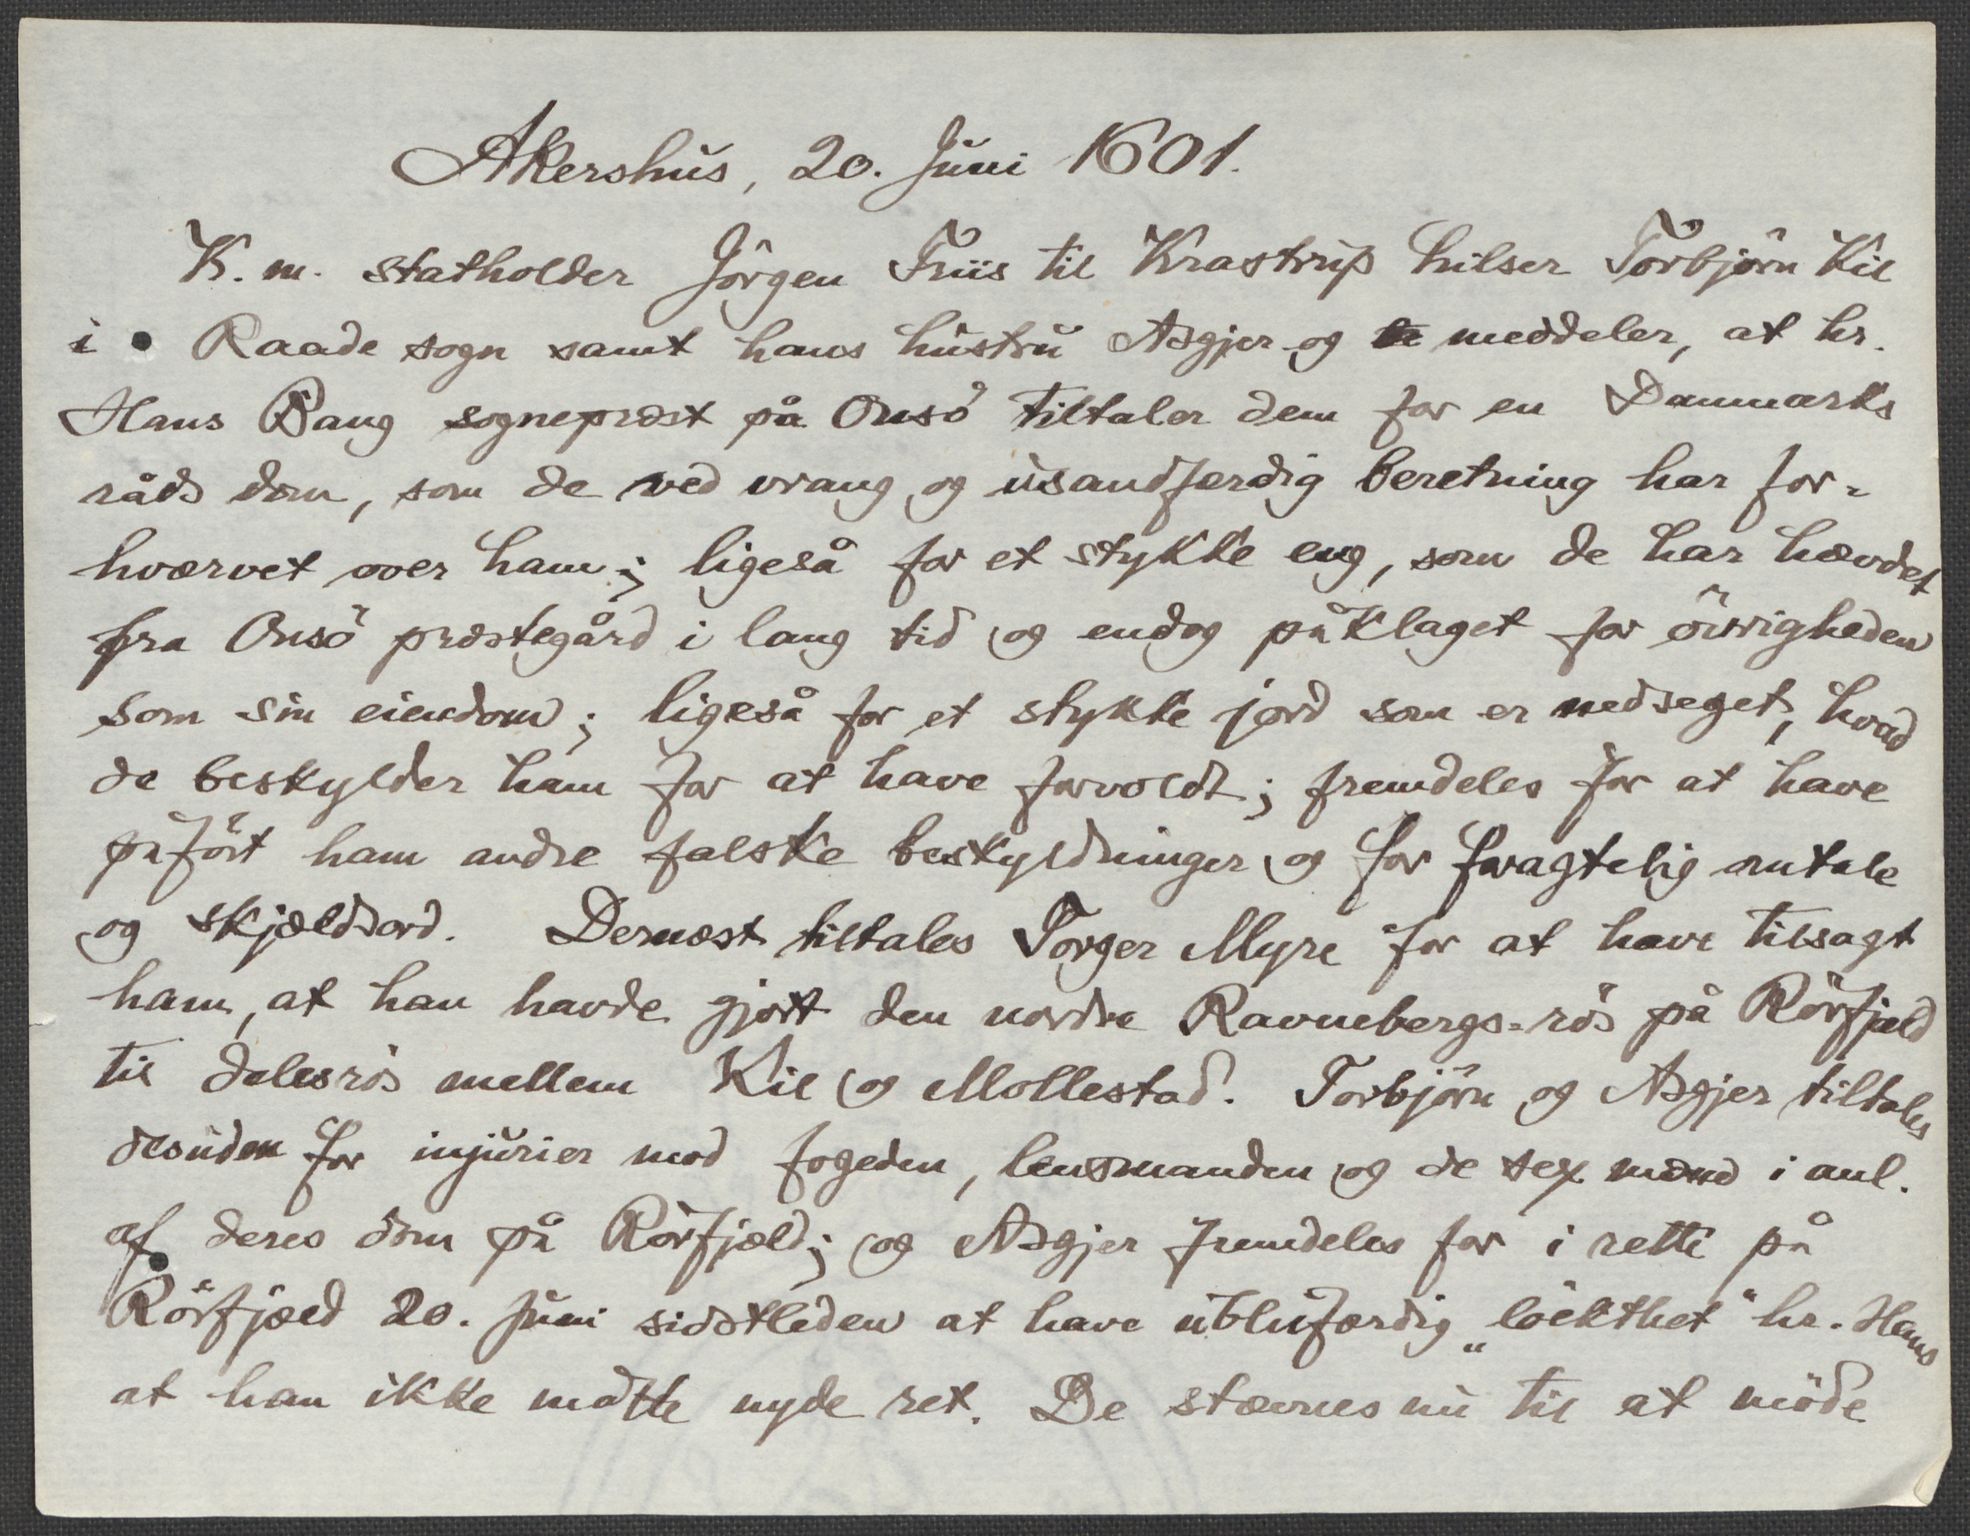 Akershus, 20. Juni 1601.
K. m. statholder Jörgen Friis til Krastrup hilser Torbjörn Kil
i Raade sogn samt hans hustru Asgjer og meddeler, at hr.
Hans Bang sogneprest på Onsö tiltaler dem for en Danmarks
råds dom, som de ved vrang og usandfærdig beretning har for-
hvervet over ham; ligeså for et stykke eng, som de har hævdet
fra Onsö præstegård i lang tid og endog påklaget for övrigheden
som sin eiendom; ligeså for et stykke jord som er nedseget, hvad
de beskylder ham for at have forvoldt; fremdeles for at have
påfört ham andre falske beskyldninger og for foragtelig omtale
og skjældsord. Dernæst tiltales Torger Myre for at have tilsagt
ham, at han havde gjort den nordre Ravnebergs-rös på Rörfjeld
til delesrös mellem Kil og Mollestad. Torbjörn og Asgjer tiltales
desuden for injurier mod fogeden, lensmanden og de sex mænd i anl.
af deres dom på Rörfjæld; og Asgjer fremdeles for i rette på
Rörfjæld 20. Juni sidstleden at have ublufærdig „löckthet" hr. Hans
at han ikke måtte nyde ret. De stævnes nu til at möde